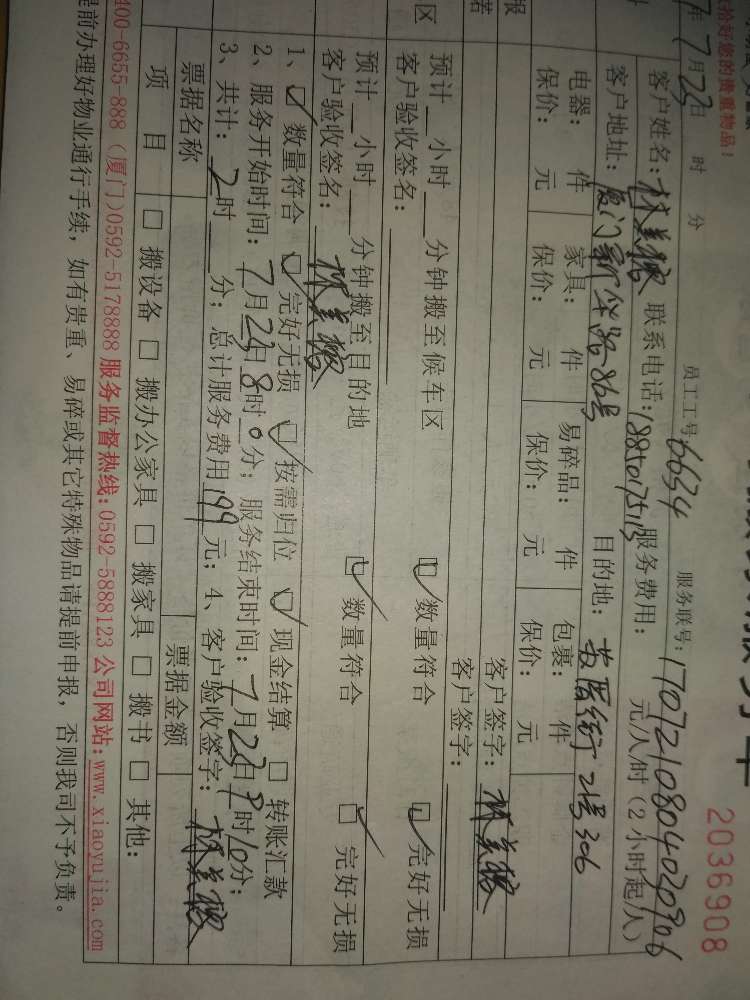 2036908
员工工号:6634 服务联号:170721080402090б
年7月23日 时 分
客户姓名: 联系电话: 服务费用: 元/人/时(2小时起/人)
客户地址:厦门 路86号 目的地: 2号306
电器: 件 家具: 件 易碎品: 件 包裹: 件
保价: 元 保价: 元 保价: 元 保价: 元
客户签字:
客户签字:
预计 小时 分钟搬至候车区 数量符合 完好无损
客户验收签名:
预计 小时 分钟搬至目的地 数量符合 完好无损
客户验收签名:
1、 数量符合 完好无损 按需归位 现金结算 转账汇款
2、服务开始时间:7月23日8时0分;服务结束时间:7月23日9时10分;
3、共计:2时 分;总计服务费用199元;4、客户验收签字:
票据名称 票据金额
项 目 搬设备 搬办公家具 搬家具 搬书 其他:
400-6655-888(厦门)0592-5178888 服务监督热线:0592-5888123 公司网站:www.xiaoyujia.com
提前办理好物业通行手续,如有贵重、易碎或其它特殊物品请提前申报,否则我司不予负责。